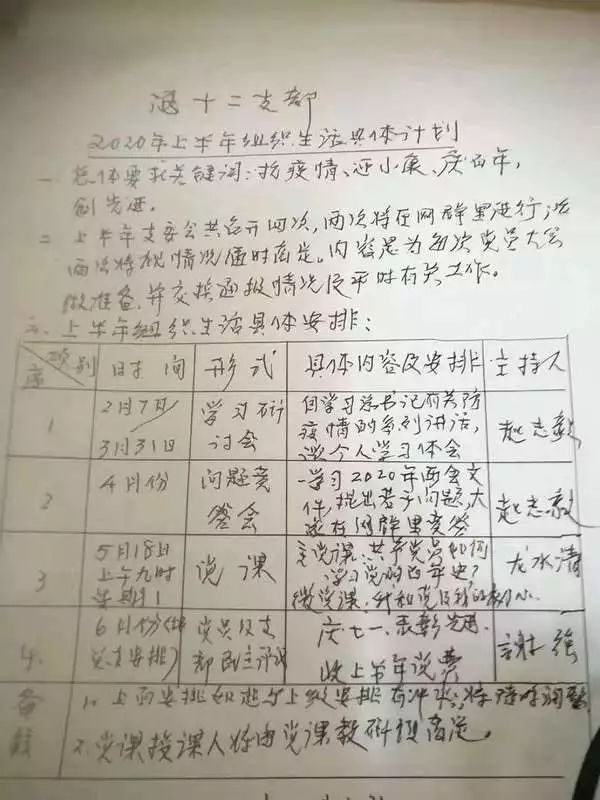 十二支部
2020年上半年组织生活具体计划
一、总体要求关键词：抗疫情、迎小康、庆百年，
创先进。
二、上半年支委会共召开四次，两次将在网群里进行，
两次将视情况随时商定。内容是为每次党员大会
做准备，并交换通报情况及平时有关工作。
三、上半年组织生活具体安排：
序 项别 时间 形式 具体内容及安排 主持人
1 2月7日/ 3月31日 学习研讨会 自学习总书记有关防疫情的系列讲话，谈个人学习体会 赵志毅
2 4月份 问题竞答会 学习2020年两会文件，提出若干问题，大家在网群里竞答 赵志毅
3 5月18日上午九时星期1 党课 党课：共产党员如何学习党的百年史？微党课：我和党及我的初心。 龙水清
4. 6月份（总支安排） 党员及支部民主评议 庆七一、表彰先进。收上半年党费 謝强
备注 1. 上面安排如起与上级安排有冲突，将随时调整
2. 党课授课人将由党课教研组商定。